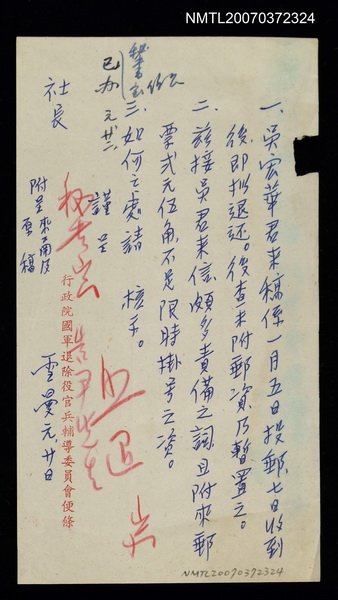 NMTL20070372324
一、吳宏華君來稿係一月五日投郵,七日收到
後即拟退还。後查未附郵資,乃暫置之。
二、茲接吳君來信,頗多責備之詞,且附來郵
票式元伍角,不足限時掛号之資。
三、如何之處,請 核示。
謹呈
社長
附呈來函及
原稿
雪曼 元、廿日
已办 元廿二
退
行政院國軍退除役官兵輔導委員會便條
NMTL20070372324